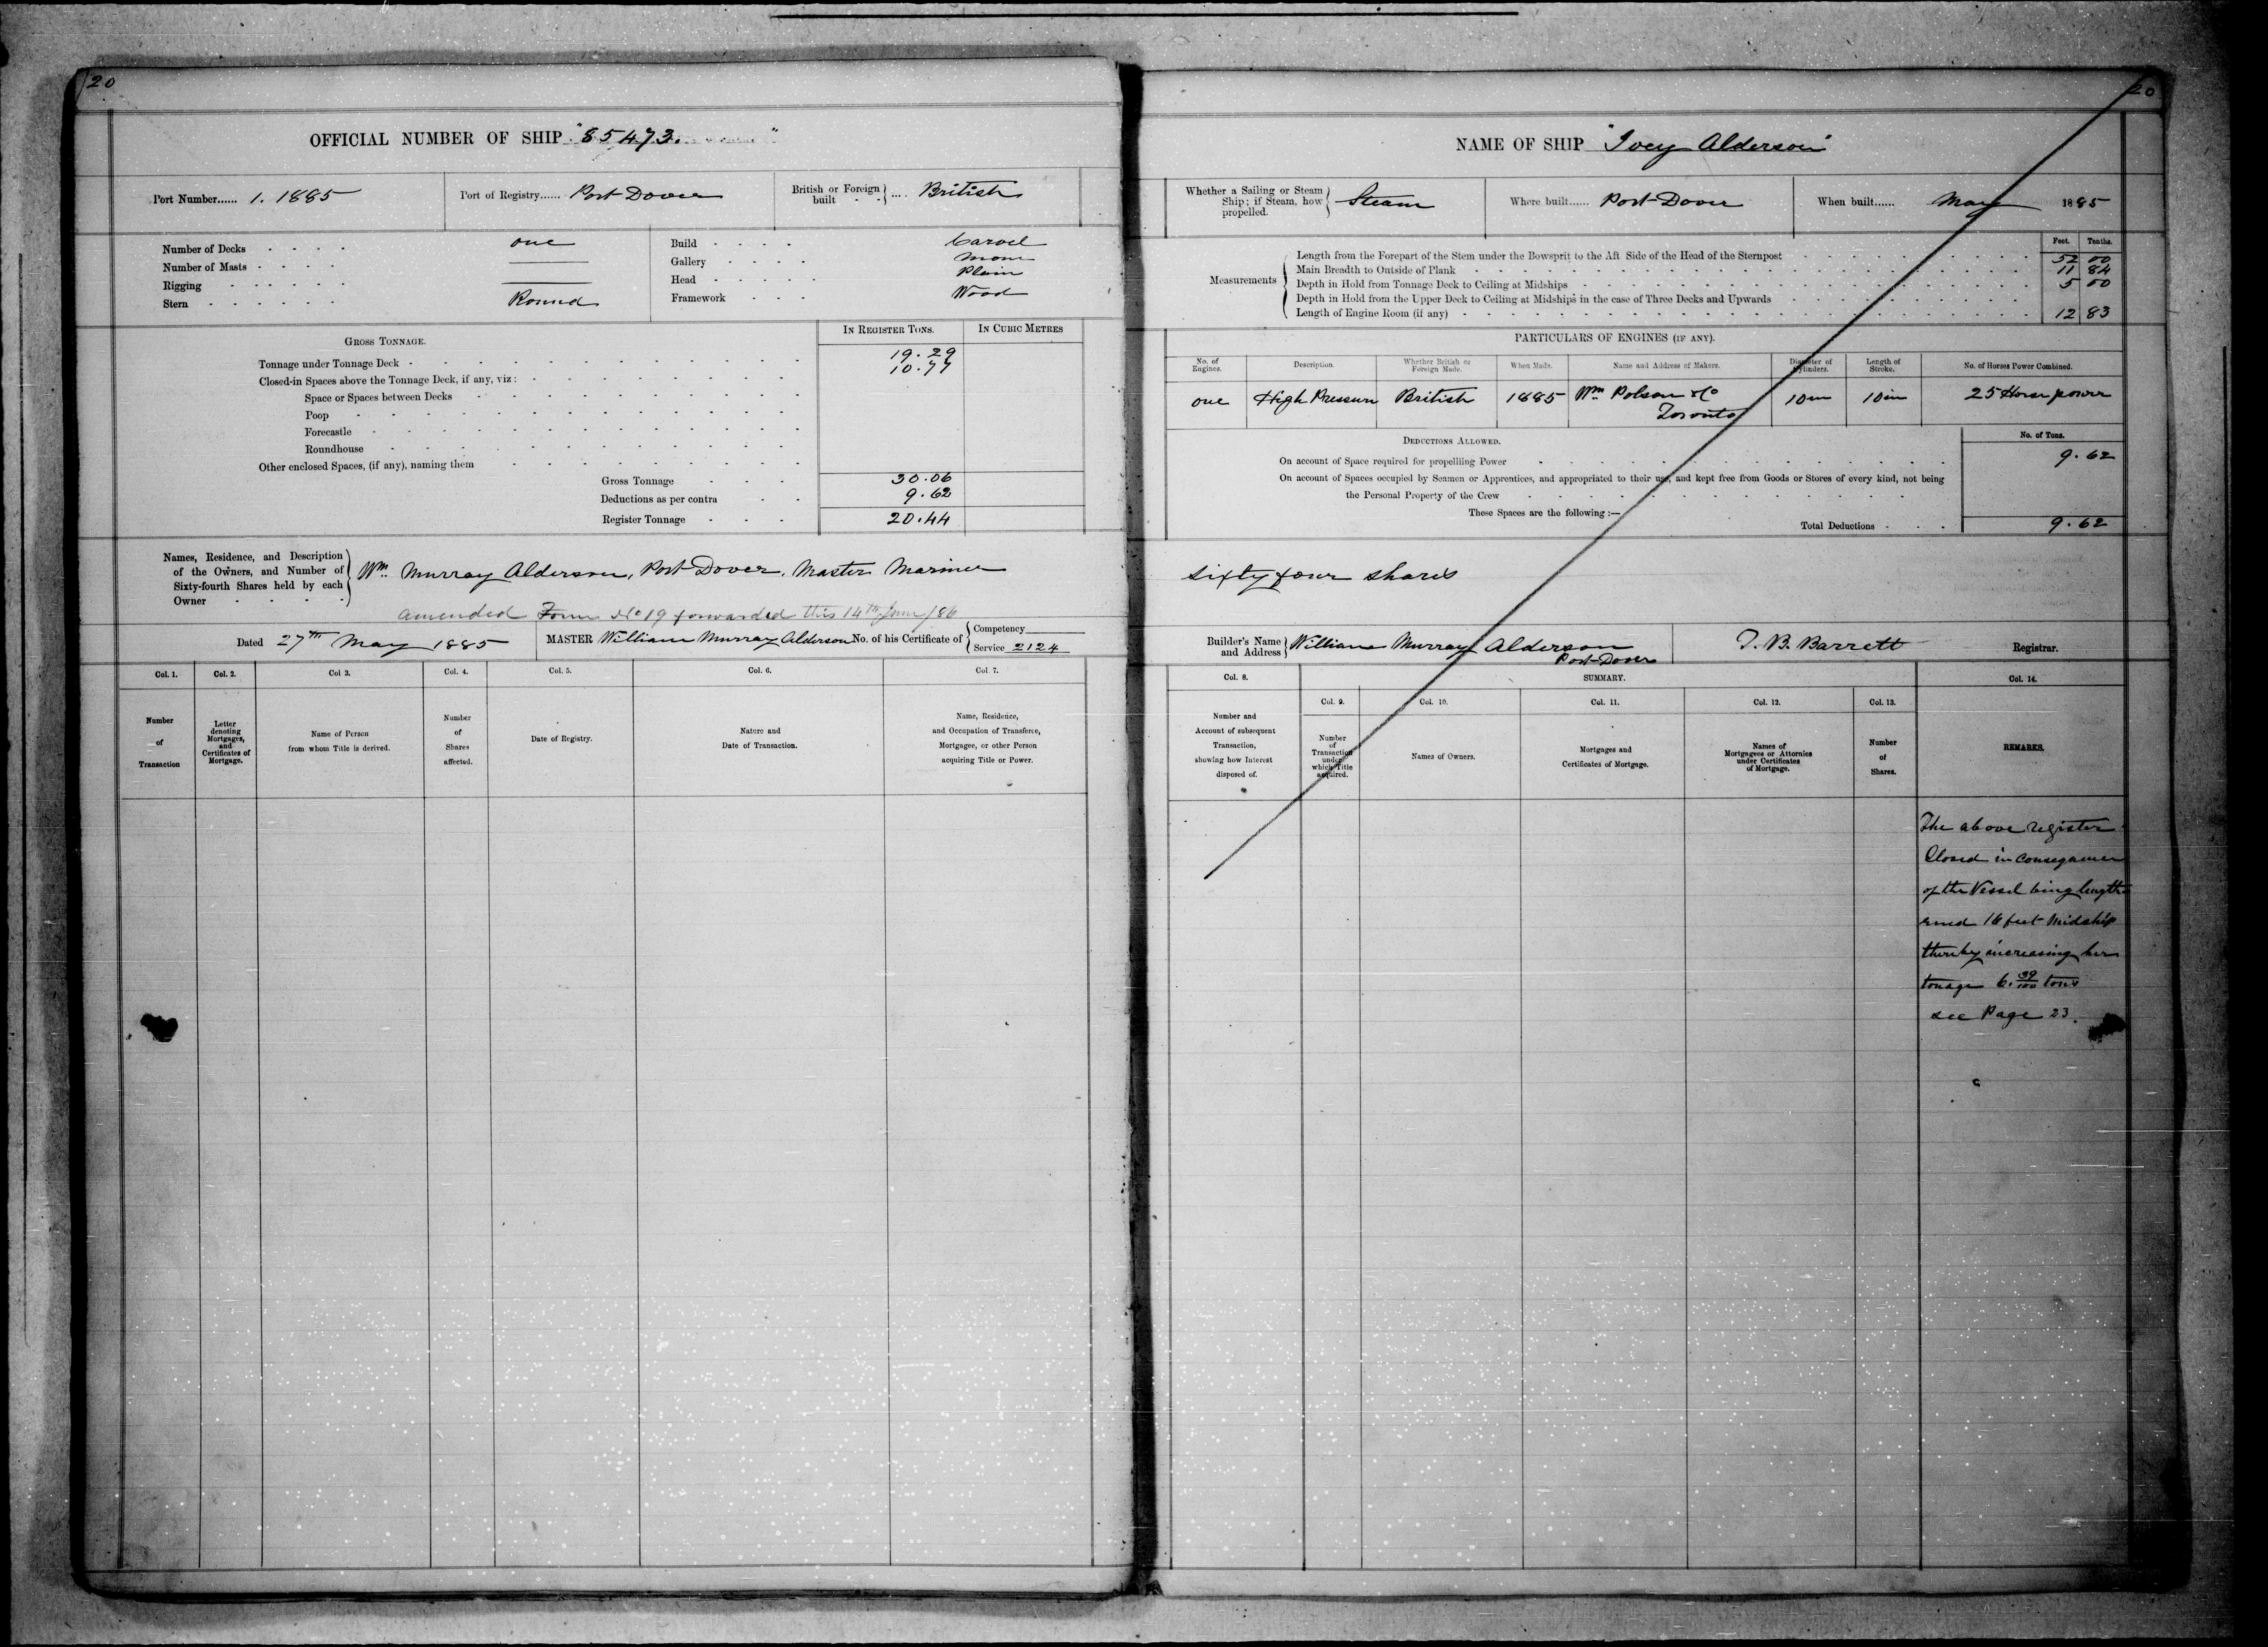 20
OFFICIAL NUMBER OF SHIP "85473."
Port Number...... 1. 1885
Port of Registry...... Port Dover
British or Foreign built .... British
Number of Decks one
Number of Masts
Rigging
Stern Round
Build Carvel
Gallery None
Head Plain
Framework Wood
IN REGISTER TONS.
IN CUBIC METRES
GROSS TONNAGE.
Tonnage under Tonnage Deck 19.29
Closed-in Spaces above the Tonnage Deck, if any, viz: 10.77
Space or Spaces between Decks
Poop
Forecastle
Roundhouse
Other enclosed Spaces, (if any), naming them
Gross Tonnage 30.06
Deductions as per contra 9.62
Register Tonnage 20.44
Names, Residence, and Description
of the Owners, and Number of
Sixty-fourth Shares held by each
Owner
Wm. Murray Alderson, Port Dover, Master Mariner
amended Form No 19 forwarded this 14th June /86
Dated 27th May 1885
MASTER William Murray Alderson No. of his Certificate of
Competency
Service 2124
Col. 1.
Number
of
Transaction
Col. 2.
Letter
denoting
Mortgages,
and
Certificates of
Mortgage.
Col 3.
Name of Person
from whom Title is derived.
Col. 4.
Number
of
Shares
affected.
Col. 5.
Date of Registry.
Col. 6.
Nature and
Date of Transaction.
Col. 7.
Name, Residence,
and Occupation of Transferee,
Mortgagee, or other Person
acquiring Title or Power.
20
NAME OF SHIP "Ivey Alderson"
Whether a Sailing or Steam
Ship; if Steam, how
propelled.
Steam
Where built...... Port Dover
When built...... May 1885
Feet. Tenths.
Measurements
Length from the Forepart of the Stem under the Bowsprit to the Aft Side of the Head of the Sternpost 52 00
Main Breadth to Outside of Plank 11 84
Depth in Hold from Tonnage Deck to Ceiling at Midships 5 00
Depth in Hold from the Upper Deck to Ceiling at Midships in the case of Three Decks and Upwards
Length of Engine Room (if any) 12 83
PARTICULARS OF ENGINES (IF ANY).
No. of
Engines.
Description.
Whether British or
Foreign Made.
When Made.
Name and Address of Makers.
Diameter of
Cylinders.
Length of
Stroke.
No. of Horses Power Combined.
one High Pressure British 1885 Wm. Polson & Co 10 in 10 in 25 Horse power
Toronto
DEDUCTIONS ALLOWED.
No. of Tons.
On account of Space required for propelling Power 9.62
On account of Spaces occupied by Seamen or Apprentices, and appropriated to their use, and kept free from Goods or Stores of every kind, not being
the Personal Property of the Crew
These Spaces are the following :—
Total Deductions 9.62
sixty four shares
Builder's Name
and Address
William Murray Alderson
Port Dover
T. B. Barrett
Registrar.
Col. 8.
Number and
Account of subsequent
Transaction,
showing how Interest
disposed of.
SUMMARY.
Col. 9.
Number
of
Transaction
under
which Title
acquired.
Col. 10.
Names of Owners.
Col. 11.
Mortgages and
Certificates of Mortgage.
Col. 12.
Names of
Mortgagees or Attornies
under Certificates
of Mortgage.
Col. 13.
Number
of
Shares.
Col. 14.
REMARKS.
The above register
Closed in Consequence
of the Vessel being length
ened 16 feet Midship
thereby increasing her
tonage 6. 39/100 tons
see Page 23.